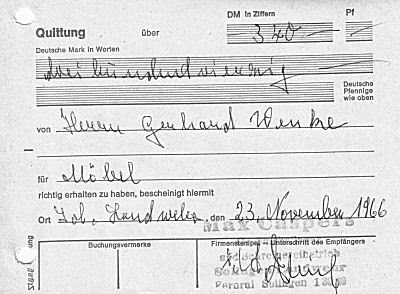 DM in Ziffern Pf
Quittung über 340 —
Deutsche Mark in Worten
dreihundertvierzig
Deutsche
Pfennige
wie oben
von Herrn Gerhard
für Möbel
richtig erhalten zu haben, bescheinigt hiermit
Ort den 23. November 1966
Max Caspers
Buchungsvermerke Firmenstempel – Unterschrift des Empfängers
Solingen
Fernruf Solingen